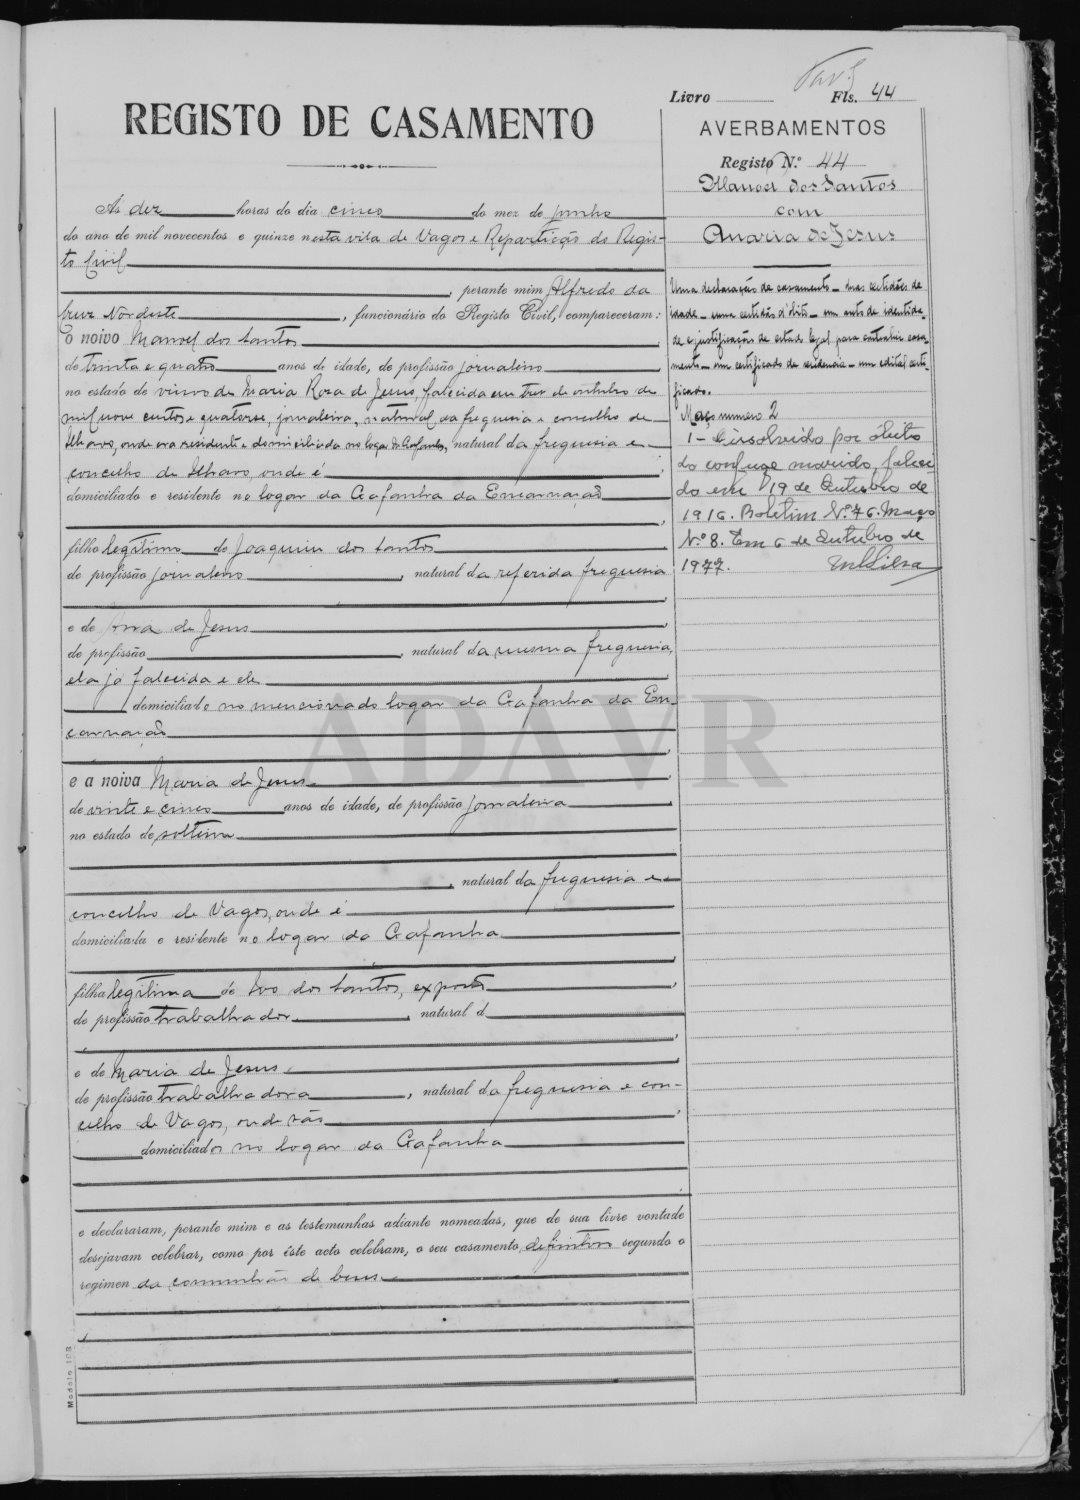 Livro Fls. 44
REGISTO DE CASAMENTO
AVERBAMENTOS
Registo N.º 44
Manoel dos Santos
com
Maria de Jesus
Ás dez horas do dia cinco do mez de junho
do ano de mil novecentos e quinze nesta vila de Vagos e Repartição do Regis-
to Civil
, perante mim Alfredo da
Cruz Nordeste, funcionário do Registo Civil, compareceram:
o noivo Manoel dos Santos,
de trinta e quatro anos de idade, de profissão jornaleiro
no estado de viuvo de Maria Rosa de Jesus, falecida em tres de outubro de
mil nove centos e quatorse, jornaleira, natural da freguesia e concelho de
Ilhavo, onde era residente e domiciliada no logar da Gafanha, natural da freguesia e
concelho de Ilhavo, onde é
domiciliado e residente no logar da Gafanha da Encarnação
,
filho legitimo de Joaquim dos Santos,
de profissão jornaleiro, natural da referida freguesia
,
e de Ana de Jesus,
de profissão, natural da mesma freguesia,
ela já falecida e ele
domiciliado no mencionado logar da Gafanha da En-
carnação
,
e a noiva Maria de Jesus,
de vinte e cinco anos de idade, de profissão jornaleira
no estado de solteira
, natural da freguesia e
concelho de Vagos, onde é
domiciliada e residente no logar da Gafanha
,
filha legitima de Ivo dos Santos, exposto,
de profissão trabalhador, natural d
,
e de Maria de Jesus,
de profissão trabalhadora, natural da freguesia e con-
celho de Vagos, onde são,
domiciliados no logar da Gafanha
e declararam, perante mim e as testemunhas adiante nomeadas, que de sua livre vontade
desejavam celebrar, como por êste acto celebram, o seu casamento definitivo segundo o
regimen da comunhão de bens
Modelo 103
Uma declaração de casamento - duas certidões de
idade - uma certidão d'obito - um auto de identida-
de e justificação de estado legal para contrahir casa-
mento - um certificado de residencia - um edital certi-
ficado.
Maço numero 2
1 - Dissolvido por óbito
do conjuge marido, faleci-
do em 19 de Outubro de
1916. Boletim N.º 76. Maço
N.º 8. Em 6 de Outubro de
1977.
ADAVR